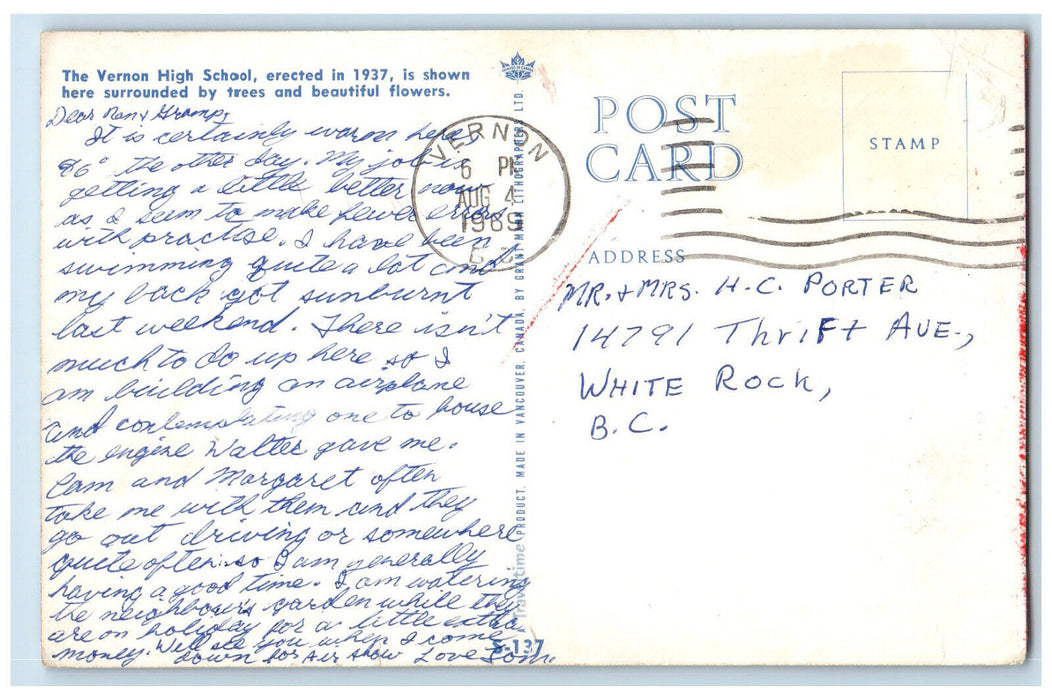 The Vernon High School, erected in 1937, is shown
here surrounded by trees and beautiful flowers.
Dear Nan & Gramp,
It is certainly warm here,
96° the other day. My job is
getting a little better now
as I seem to make fewer errors
with practise. I have been
swimming quite a lot and
my back got sunburnt
last weekend. There isn't
much to do up here so I
am building an airplane
and contemplating one to house
the engine Walter gave me.
Cam and Margaret often
take me with them and they
go out driving or somewhere
quite often so I am generally
having a good time. I am watering
the neighbours garden while they
are on holiday for a little extra
money. Will see you when I come
down for Air Show Love Tom
VERNON
6 PM
AUG 4
1969
B.C.
A Traveltime PRODUCT. MADE IN VANCOUVER, CANADA, BY GRANT-MANN LITHOGRAPHERS LTD.
S-137
POST
CARD
STAMP
ADDRESS
MR. & MRS. H.C. PORTER
14791 Thrift AVE.,
WHITE ROCK,
B.C.